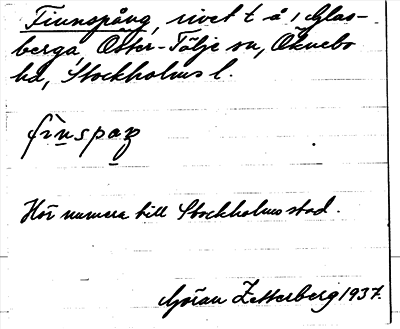 Finnspång, rivet t å i Glas-
berga, Öster-Tälje sn, Öknebo
hd, Stockholms l.
finspaŋ
Hör numera till Stockholms stad.
Göran Zetterberg 1937.